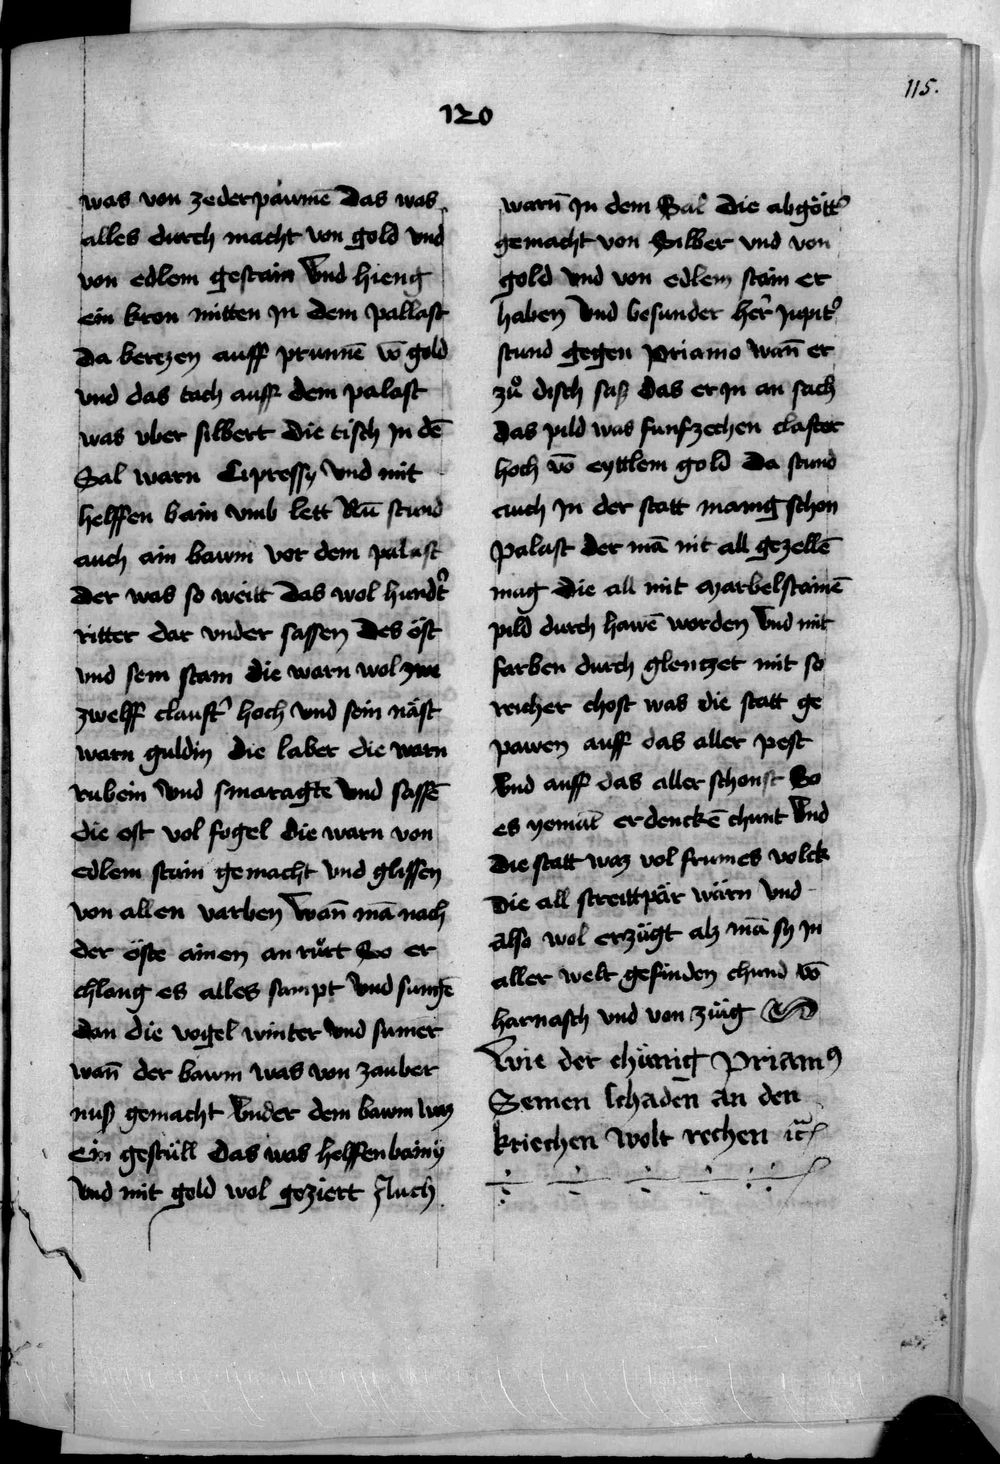 115.
120
was von zederpäwmē Das was
alles durch macht von gold vnd
von edlem gestain Vnd hieng
ein kron mitten in dem pallast
Da berezen auff prunnē vō gold
vnd das tach auff dem palast
was vber silbert die tisch in dē
Sal warn Cipressy vnd mit
helffen bain vmb lett Nū stund
auch ain bawm vor dem palast
der was so weitt das wol hundt͛
ritter dar vnder sassen Des öst
vnd sein stam die warn wol zwe
zwelff claust͛ hoch vnd sein näst
warn guldin die laber die warn
rubein vnd smaragtē vnd sassē
die ost vol fogel die warn von
edlem stain gemacht vnd glissen
von allen varben Wañ mā nach
der öste ainen an ruͦrt So er
chlang es alles sampt vnd sungē
dan die vogel winter vnd sumer
wañ der bawm was von zauber
nuß gemacht Vnder dem bawm waz
Ein gestüll das was helffenbainy
vnd mit gold wol geziert Auch
warñ in dem Sal die abgött͛
gemacht von Silber vnd von
gold vnd von edlem stain er
haben Vnd besunder her̃ Jupit͛
stund gegen priamo wañ er
zuͦ disch saß das er in an sach
das pild was funfzechen claster
hoch vō eyttlem gold Da stund
auch in der statt manig schon
palast der mā nit all gezellē
mag die all mit marbelstainē
pild durch hawē worden Vnd mit
farben durch glenczet mit so
reicher chost was die statt ge
pawen auff das aller pest
Vnd auff das aller schonst So
es yemāt erdenckē chunt Vnd
die statt waz vol frumes volck
die all streittpär wärn vnd
also wol erzügt alz mā sy in
aller welt gefinden chund vō
harnasch vnd von züig
Wie der chünig Priamꝰ
Seinen schaden an den
kriechen wolt rechen ꝛc̄